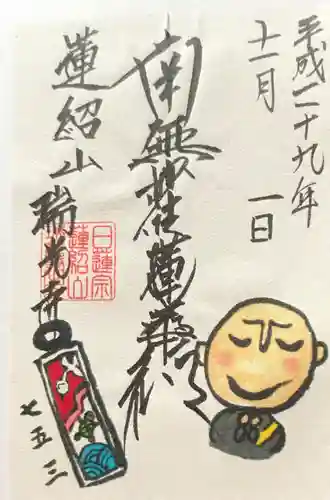 平成二十九年
十一月 一日
南無妙法蓮華経
蓮紹山
瑞光寺
日蓮宗
蓮紹山
七五三